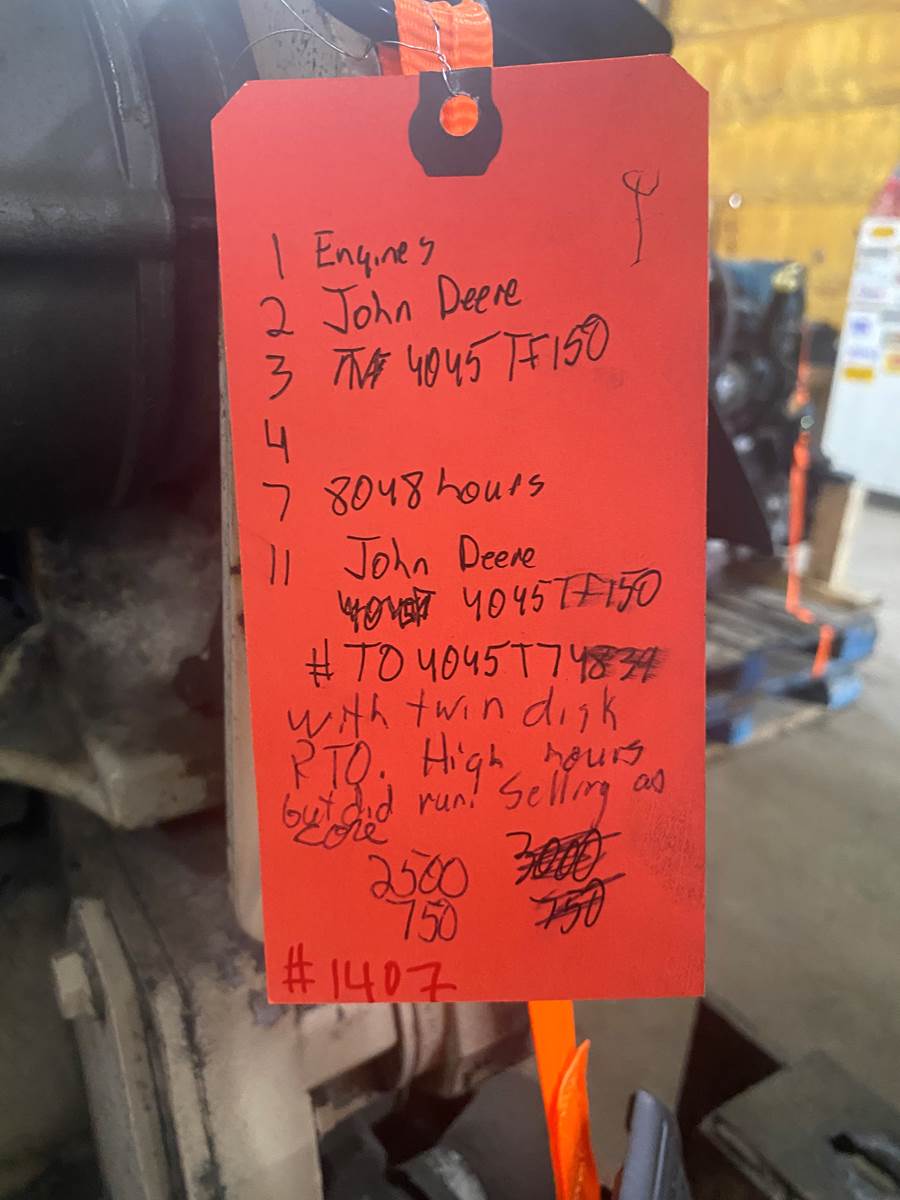 1 Engines
2 John Deere
3 4045TF150
4
7 8048 hours
11 John Deere
4045TF150
#TO4045T774834
with twin disk
PTO. High hours
but did run! Selling as
core
2500 3000
750 750
#1407